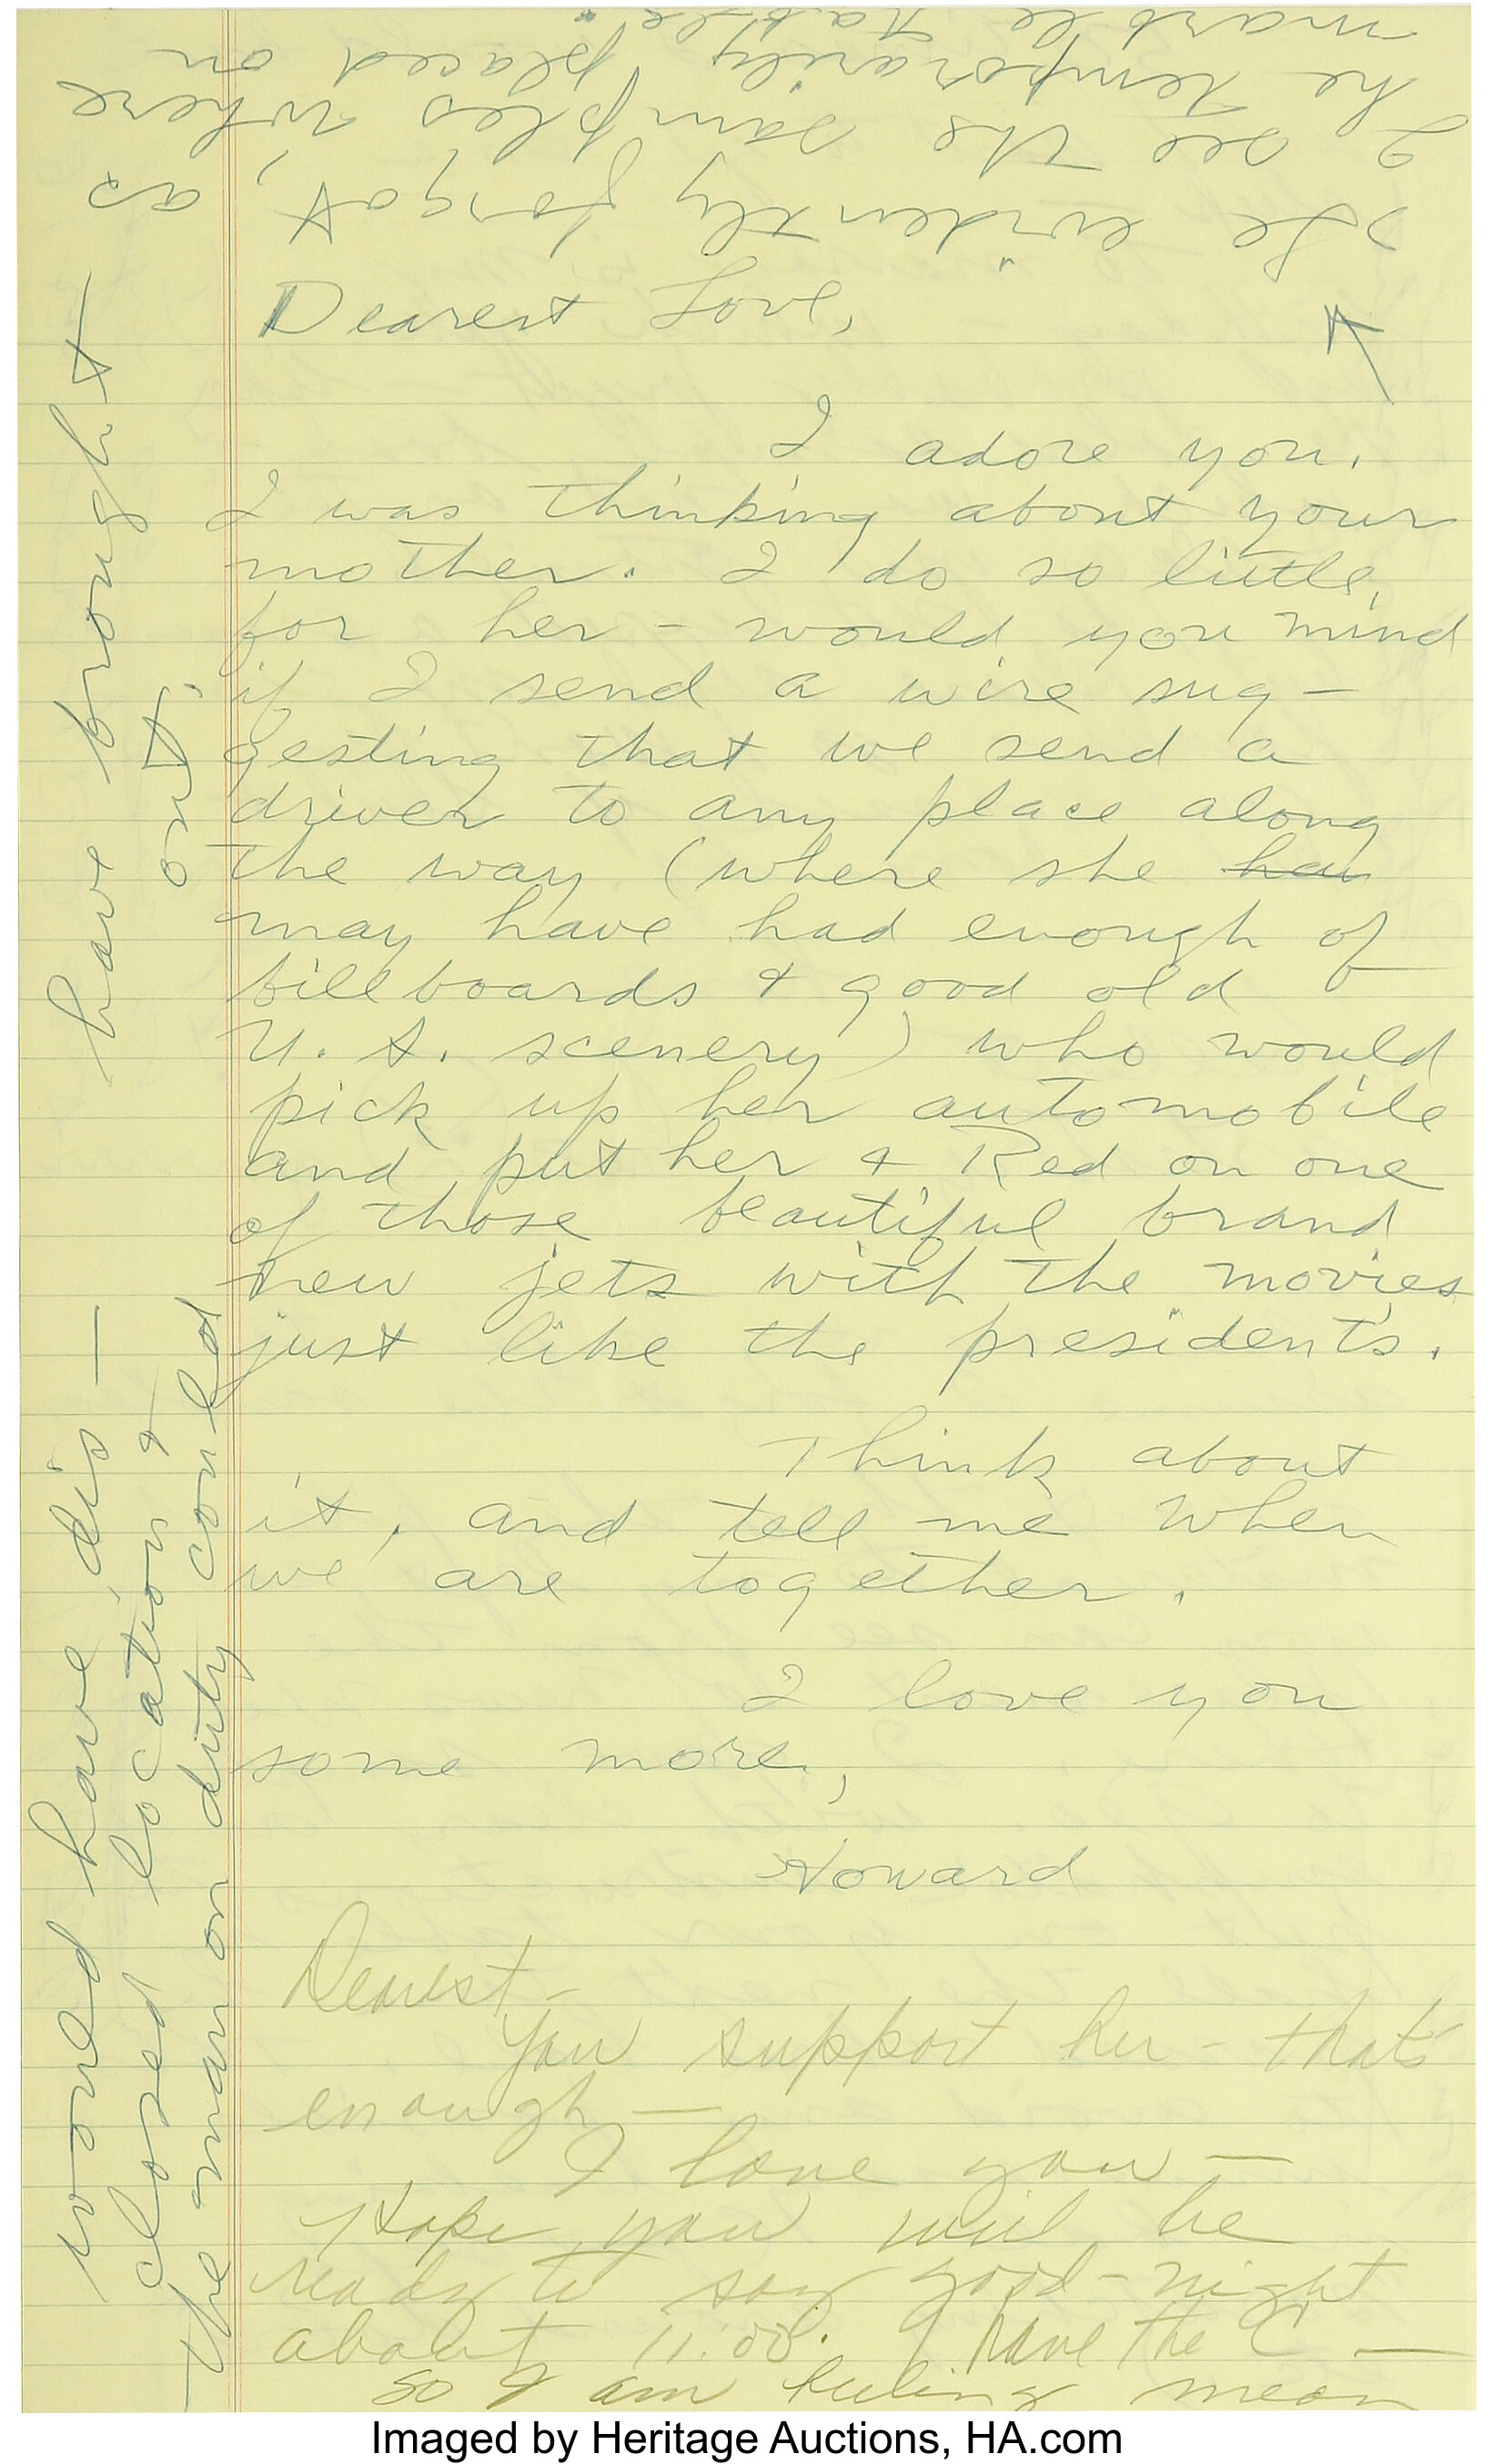 He evidently forgot, as
I see the samples where
he temporarily placed on
marble table.
Dearest Love,
I adore you.
I was thinking about your
mother. I do so little,
for her – would you mind
if I send a wire sug-
gesting that we send a
driver to any place along
the way (where she hav
may have had enough of
billboards & good old
U.S. scenery) who would
pick up her automobile
and put her & Red on one
of those beautiful brand
new jets with the movies
just like the president's.
Think about
it, and tell me when
we are together.
I love you
some more,
Howard
Dearest –
You support her – that's
enough —
I love you —
Hope you will be
ready to say good-night
about 11:00. I have the C —
so I am feeling mean
would have dis-
closed location &
the man on duty could
have brought
out.
Imaged by Heritage Auctions, HA.com